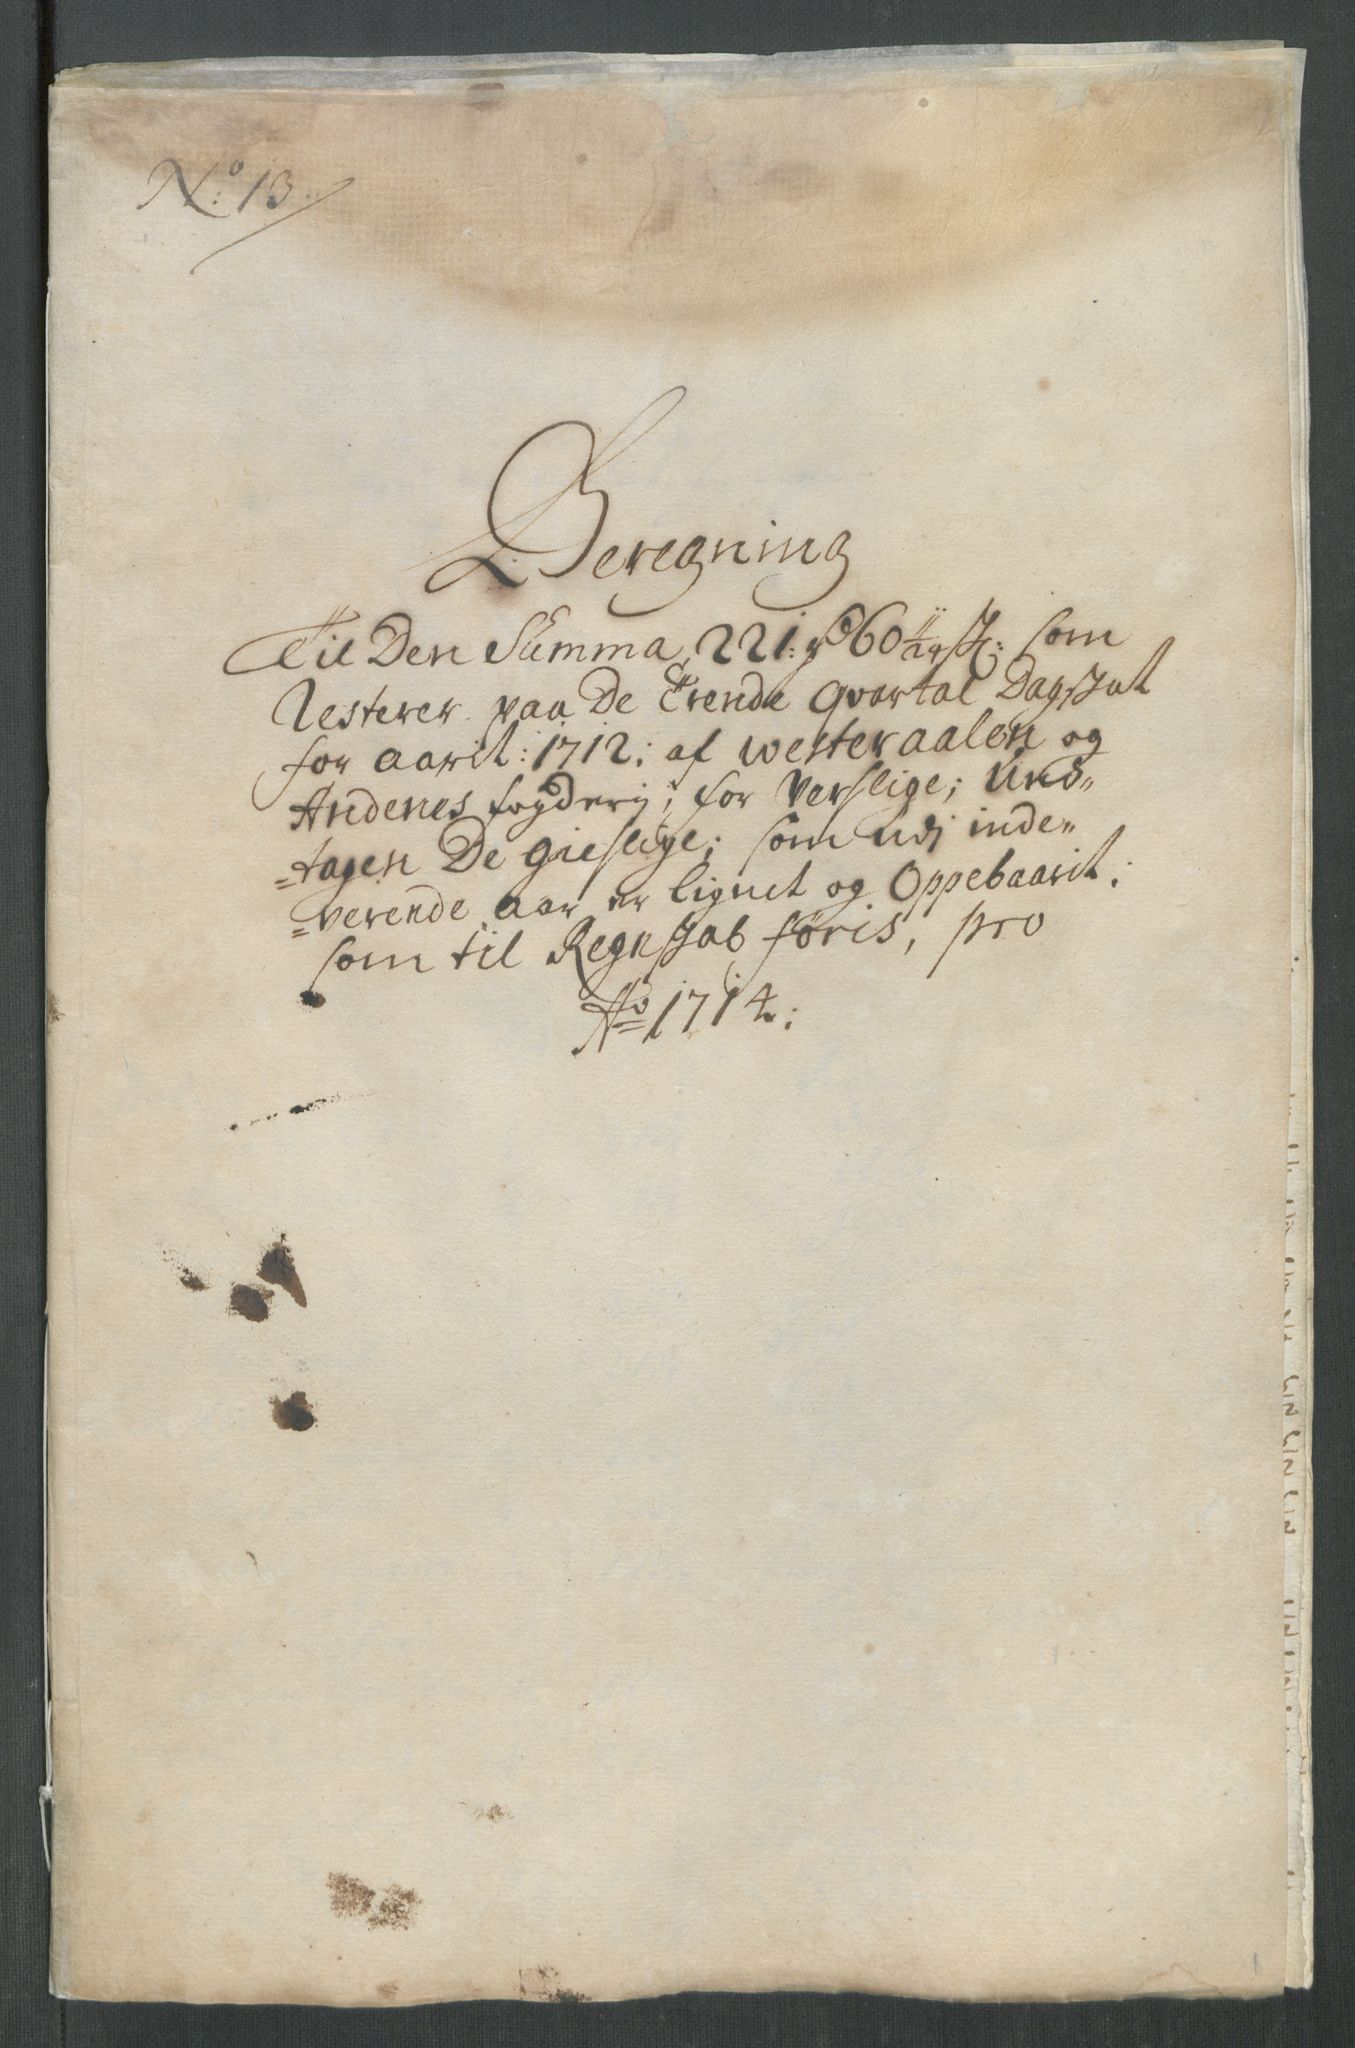 No: 13
Beregning
Til Den Summa 221: rd 60 11/24 s: som
Resterer paa De Trende qvartal Dagskat
for aarit: 1712: af westeraalen og
Andenes fogderij; for Verslige; Und-
-tagen De gieslige; som udj inde-
-verende aar er lignet og Oppebaarit:
som til Regnskab føris, pro
Ao 1714:
1